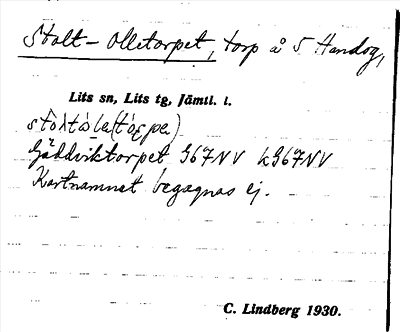 Stolt-Olletorpet, torp å S Handog,
Lits sn, Lits tg, Jämtl. l.
Gäddviktorpet 967NV k967NV
Kartnamnet begagnas ej.
C. Lindberg 1930.